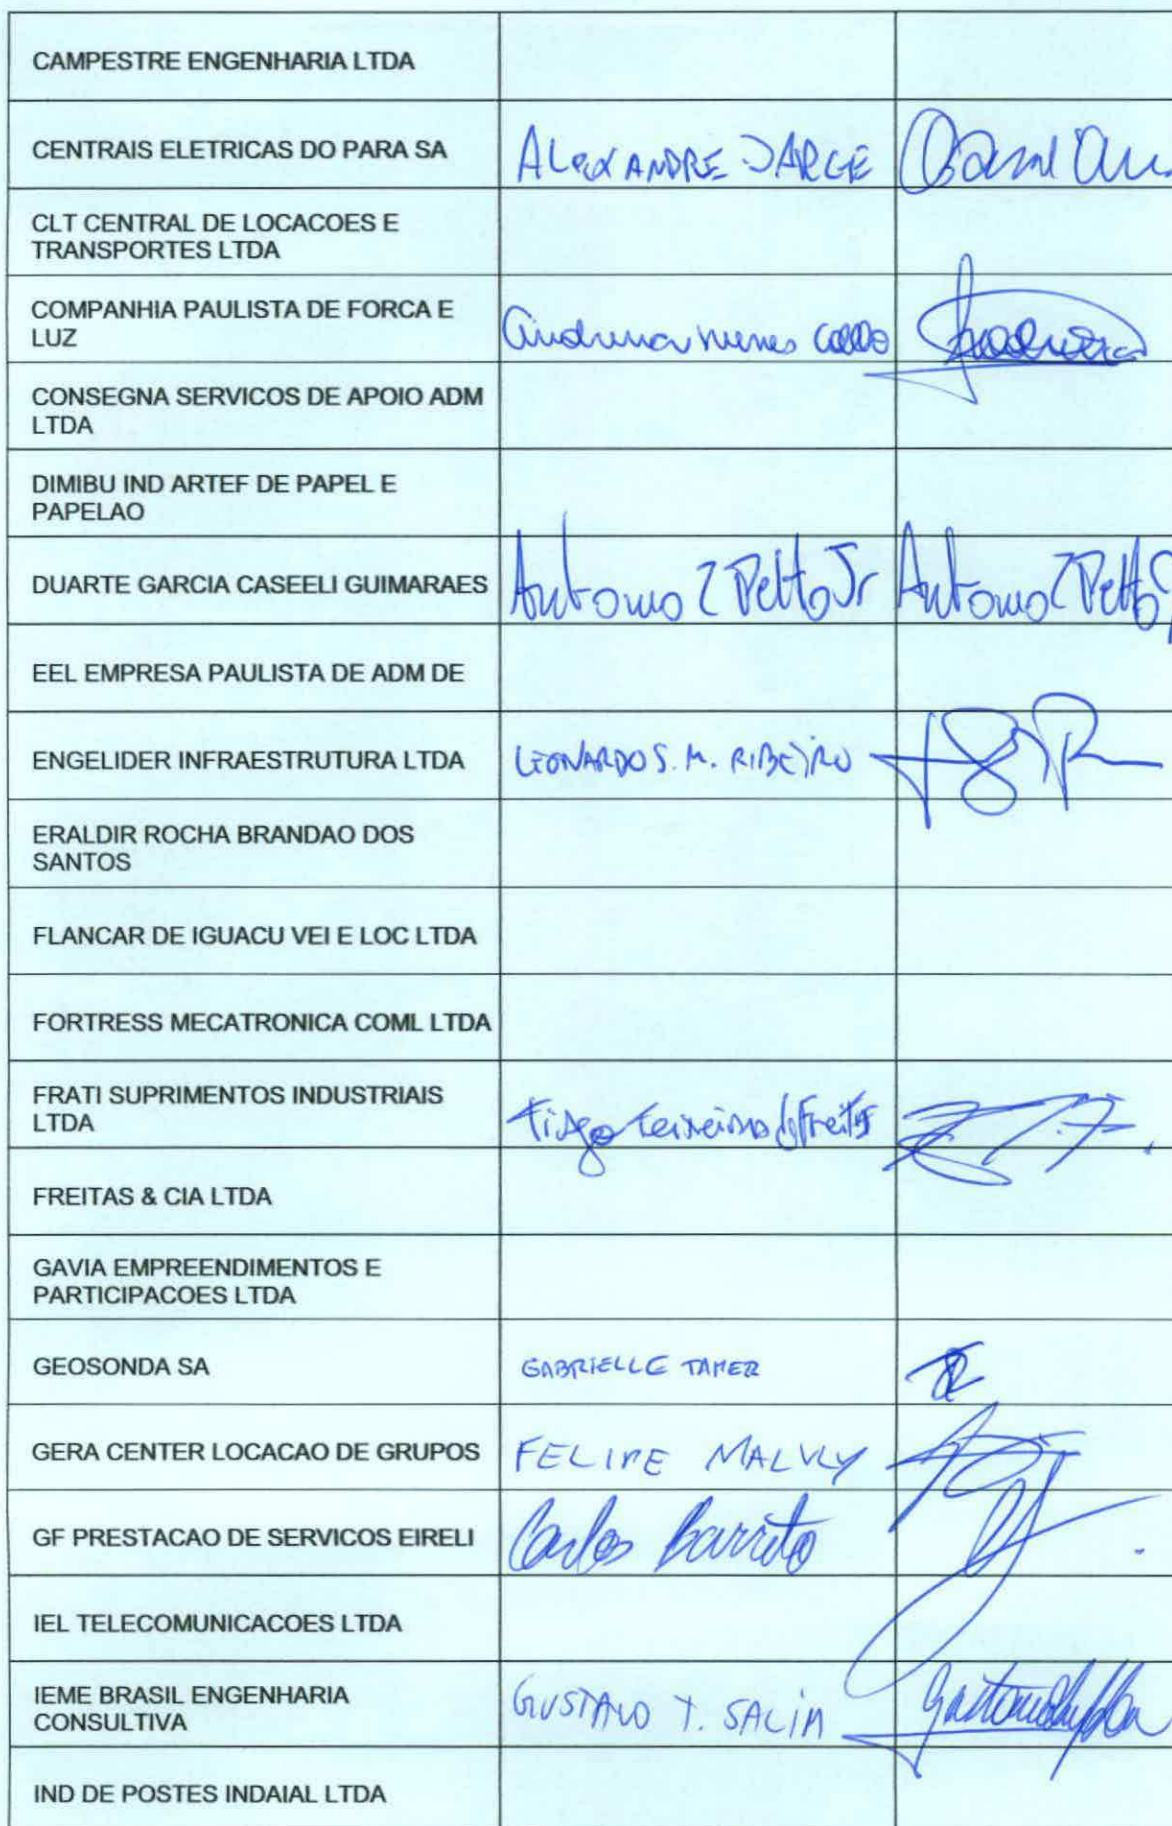 CAMPESTRE ENGENHARIA LTDA
CENTRAIS ELETRICAS DO PARA SA
ALEXANDRE JARGE
CLT CENTRAL DE LOCACOES E
TRANSPORTES LTDA
COMPANHIA PAULISTA DE FORCA E
LUZ
nunes
CONSEGNA SERVICOS DE APOIO ADM
LTDA
DIMIBU IND ARTEF DE PAPEL E
PAPELAO
DUARTE GARCIA CASEELI GUIMARAES
Antonio Z Petto Jr
Antonio Z Petto
EEL EMPRESA PAULISTA DE ADM DE
ENGELIDER INFRAESTRUTURA LTDA
LEONARDO S. M. RIBEIRO
ERALDIR ROCHA BRANDAO DOS
SANTOS
FLANCAR DE IGUACU VEI E LOC LTDA
FORTRESS MECATRONICA COML LTDA
FRATI SUPRIMENTOS INDUSTRIAIS
LTDA
Tiago teixeira de Freitas
FREITAS & CIA LTDA
GAVIA EMPREENDIMENTOS E
PARTICIPACOES LTDA
GEOSONDA SA
GABRIELLE TAMER
GERA CENTER LOCACAO DE GRUPOS
FELIPE
GF PRESTACAO DE SERVICOS EIRELI
Carlos Barreto
IEL TELECOMUNICACOES LTDA
IEME BRASIL ENGENHARIA
CONSULTIVA
GUSTAVO T. SALIM
IND DE POSTES INDAIAL LTDA